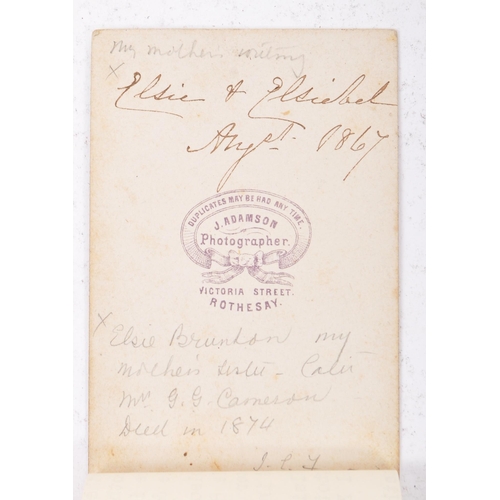 My mother's writing
x
Elsie & Elsiebel
Augst. 1867
DUPLICATES MAY BE HAD ANY TIME.
J. ADAMSON
Photographer.
VICTORIA STREET.
ROTHESAY.
x
Elsie Brunton my
mother's sister -
Mrs. G. G.
Died in 1874